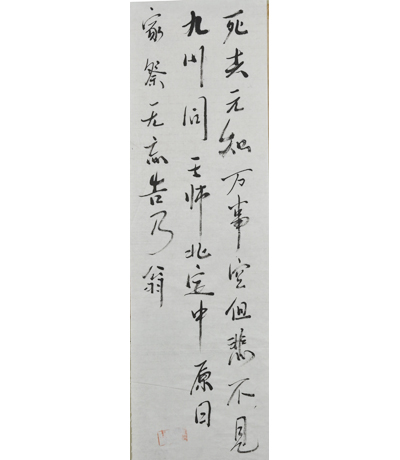 死去元知万事空但悲不见
九州同王师北定中原日
家祭无忘告乃翁